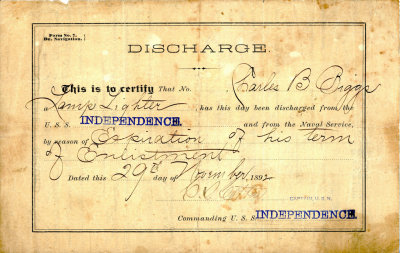 Form No. 7.
Bu. Navigation.
DISCHARGE.
This is to certify That No. Charles B Briggs
a Lamp Lighter has this day been discharged from the
U. S. S. INDEPENDENCE. and from the Naval Service,
by reason of Expiration of his term
of Enlistment
Dated this 29th day of November 1892
CAPTAIN U.S.N.
Commanding U. S. S. INDEPENDENCE.